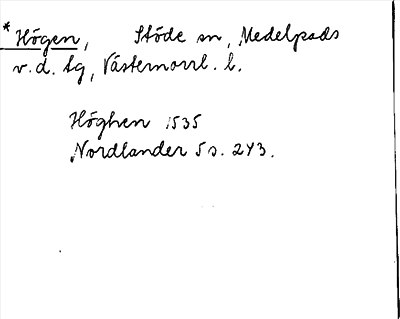 * Högen, Stöde sn, Medelpads
v.d. tg, Västernorrl. l.
Höghen 1535
Nordlander 5 s. 243.